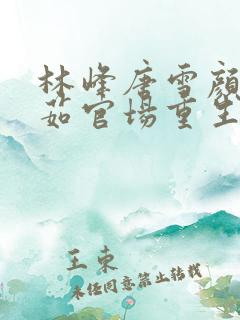 林峰唐雪颜
茹官场重生
王东
未经同意禁止转载